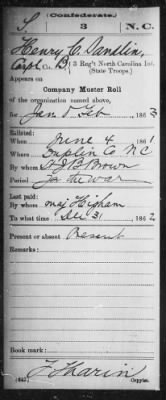 (Confederate.)
S. 3 N.C.
Henry C. Sandlin,
Capt, Co. B, 3 Reg't North Carolina Inf.
(State Troops.)
Appears on
Company Muster Roll
of the organization named above,
for Jan & Feb, 1863
Enlisted:
When June 4, 1861
Where Duplin Co NC
By whom J B Brown
Period For the war
Last paid:
By whom Maj Higham
To what time Dec 31, 1862
Present or absent Present
Remarks:
Book mark:
(642) Copyist.